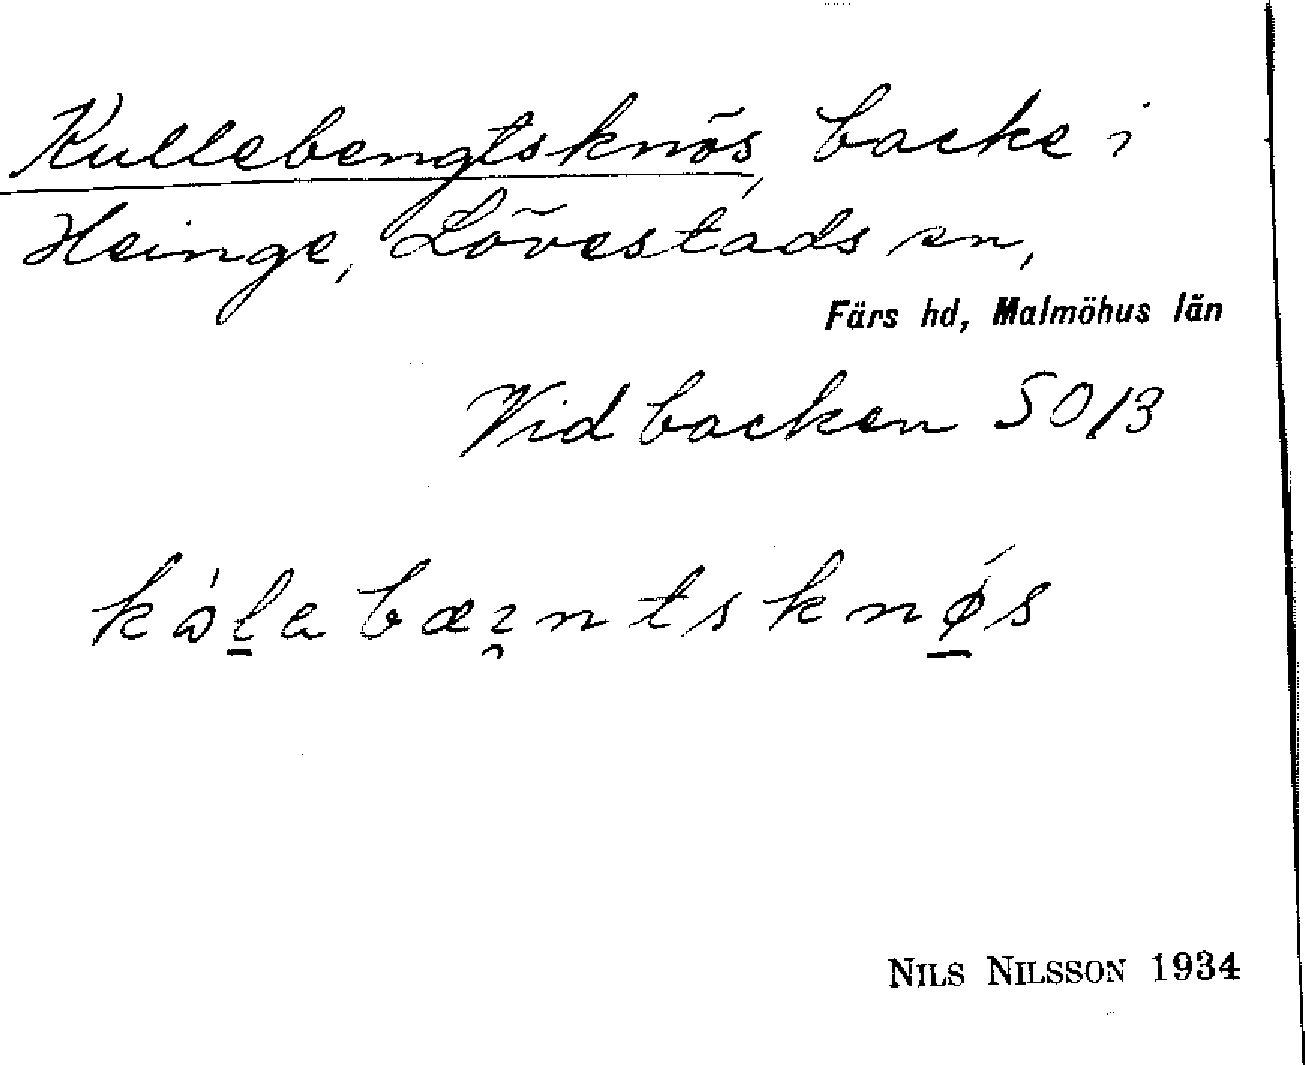 Kullebengtsknös, backe i
Heinge, Lövestads sn,
Färs hd, Malmöhus län
Vid backen 50/3
NILS NILSSON 1934